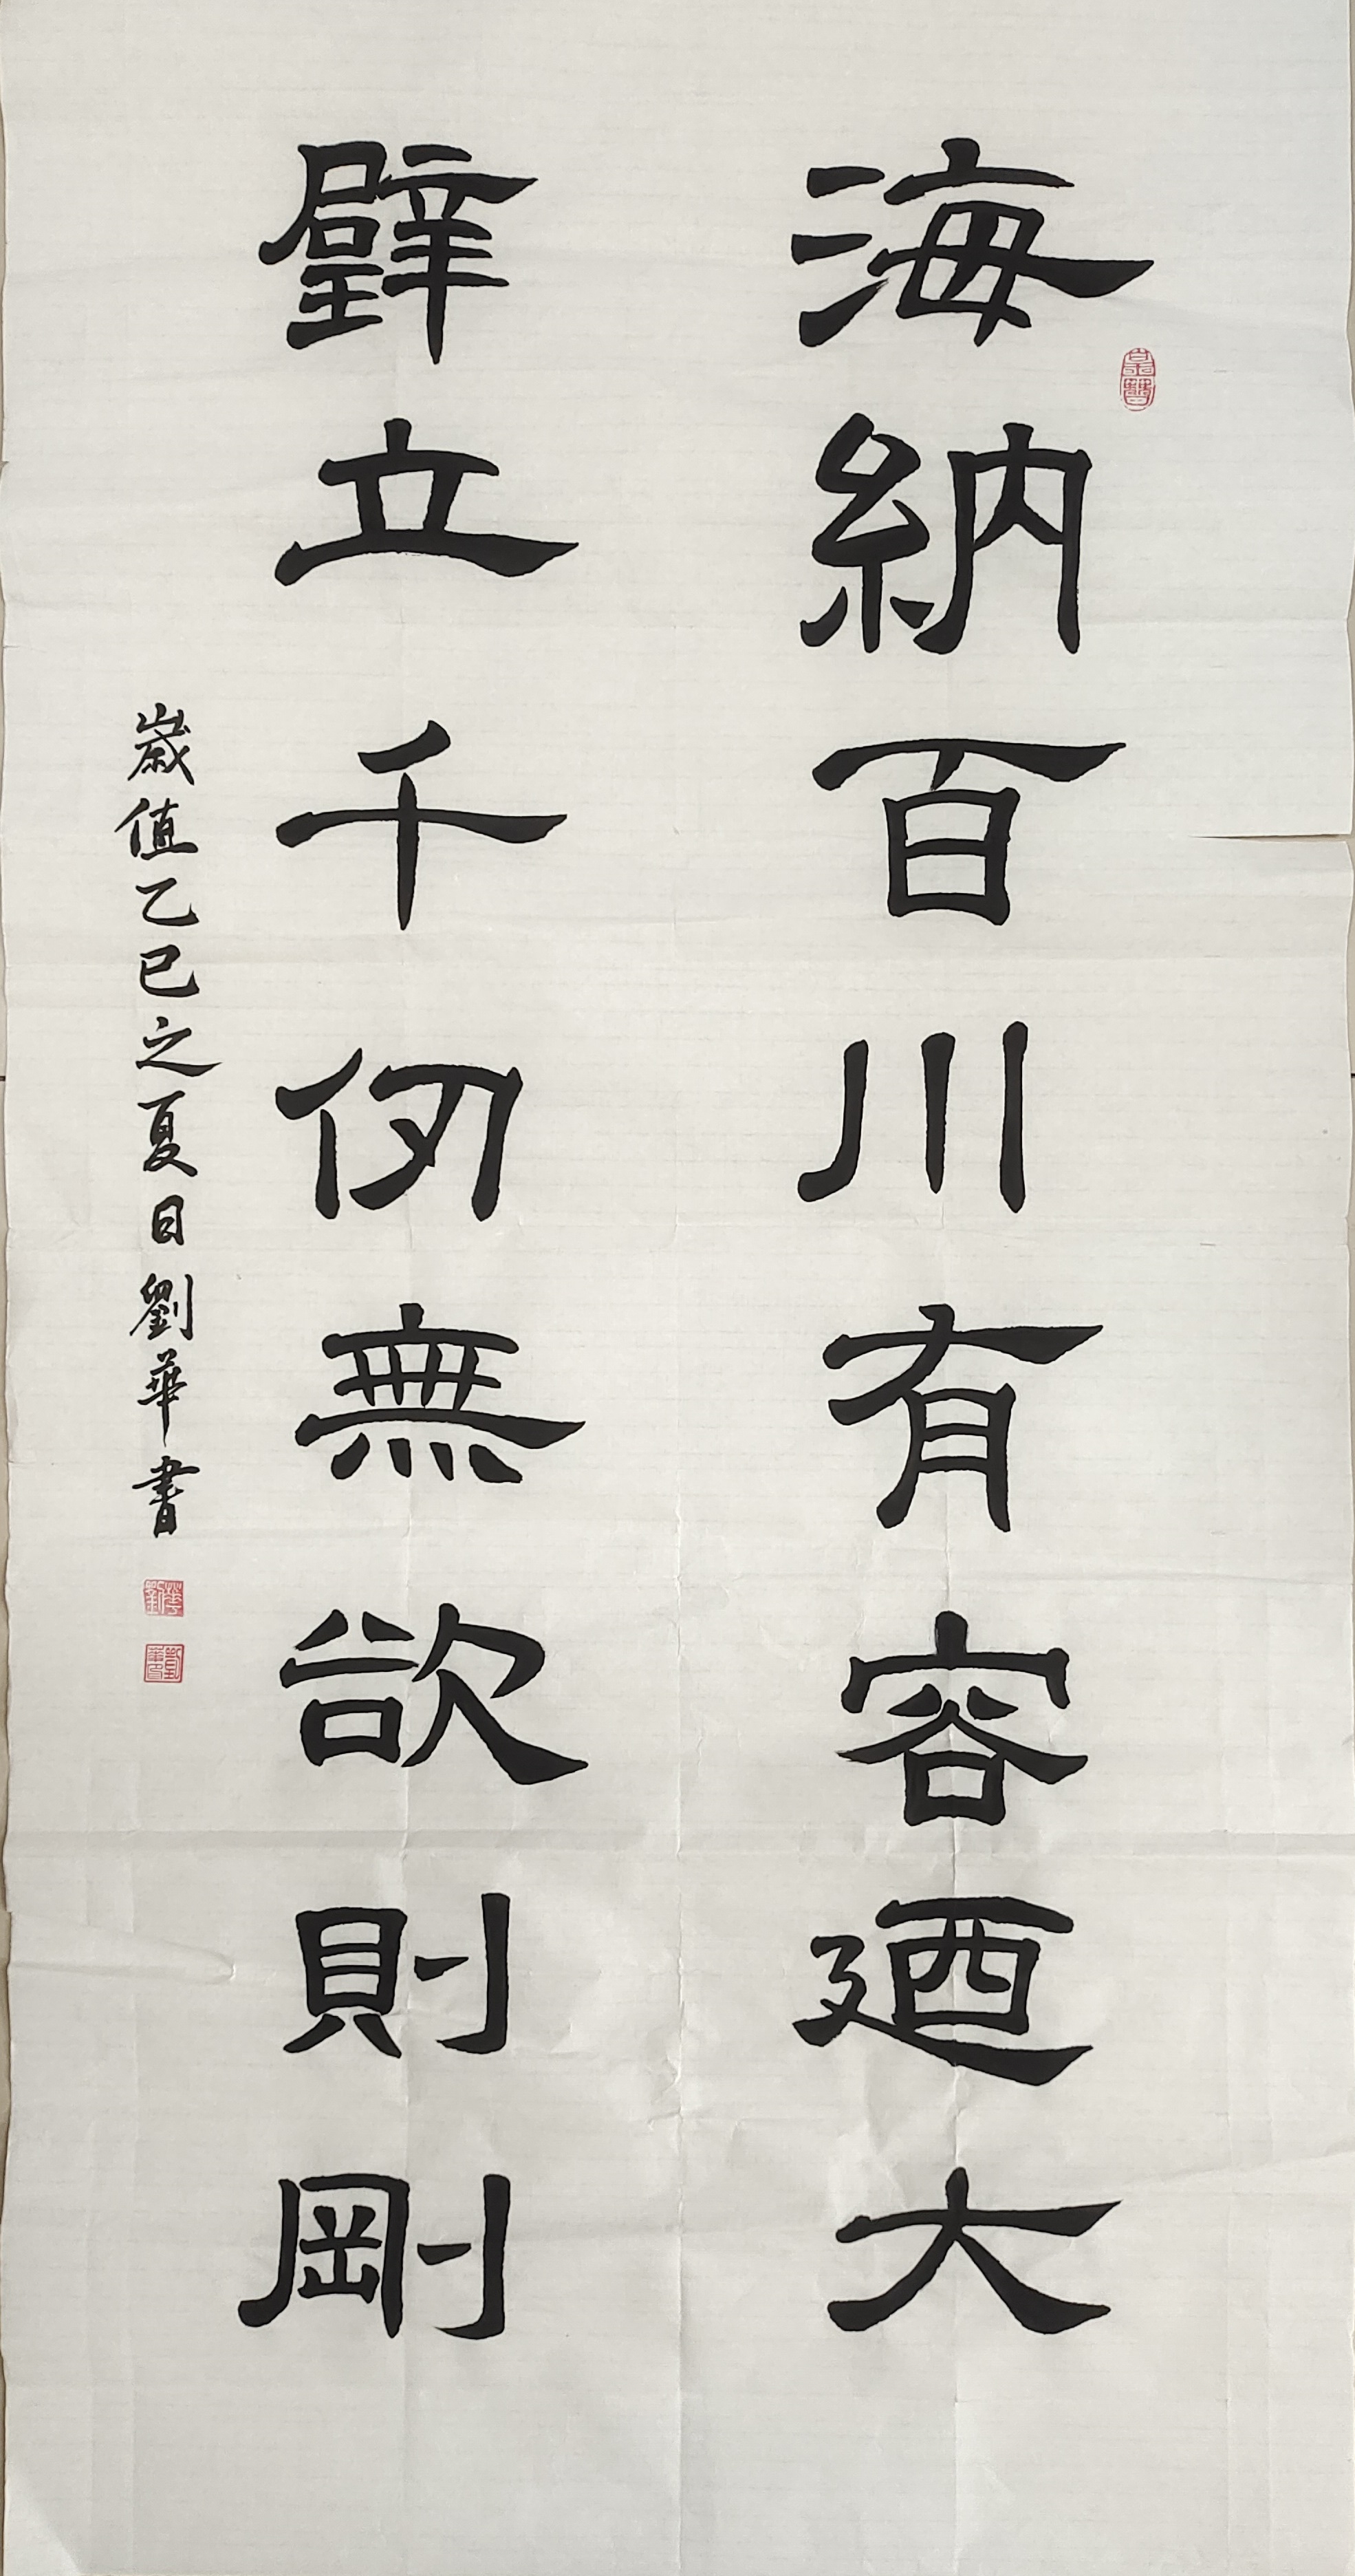 海納百川有容廼大
壁立千仞無欲則剛
歲值乙巳之夏日劉華書